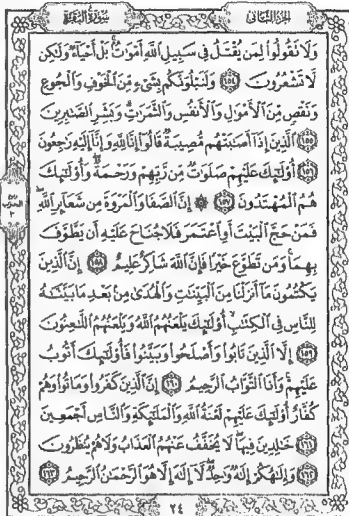 سُورَةُ البَقَرَةِ الجُزءُ الثَّانِي
وَلَا تَقُولُوا لِمَن يُقْتَلُ فِي سَبِيلِ اللَّهِ أَمْوَاتٌ بَلْ أَحْيَاءٌ وَلَٰكِن
لَّا تَشْعُرُونَ ﴿١٥٤﴾ وَلَنَبْلُوَنَّكُم بِشَيْءٍ مِّنَ الْخَوْفِ وَالْجُوعِ
وَنَقْصٍ مِّنَ الْأَمْوَالِ وَالْأَنفُسِ وَالثَّمَرَاتِ وَبَشِّرِ الصَّابِرِينَ
﴿١٥٥﴾ الَّذِينَ إِذَا أَصَابَتْهُم مُّصِيبَةٌ قَالُوا إِنَّا لِلَّهِ وَإِنَّا إِلَيْهِ رَاجِعُونَ
﴿١٥٦﴾ أُولَٰئِكَ عَلَيْهِمْ صَلَوَاتٌ مِّن رَّبِّهِمْ وَرَحْمَةٌ وَأُولَٰئِكَ
هُمُ الْمُهْتَدُونَ ﴿١٥٧﴾ ۞ إِنَّ الصَّفَا وَالْمَرْوَةَ مِن شَعَائِرِ اللَّهِ
فَمَنْ حَجَّ الْبَيْتَ أَوِ اعْتَمَرَ فَلَا جُنَاحَ عَلَيْهِ أَن يَطَّوَّفَ
بِهِمَا وَمَن تَطَوَّعَ خَيْرًا فَإِنَّ اللَّهَ شَاكِرٌ عَلِيمٌ ﴿١٥٨﴾ إِنَّ الَّذِينَ
يَكْتُمُونَ مَا أَنزَلْنَا مِنَ الْبَيِّنَاتِ وَالْهُدَىٰ مِن بَعْدِ مَا بَيَّنَّاهُ
لِلنَّاسِ فِي الْكِتَابِ أُولَٰئِكَ يَلْعَنُهُمُ اللَّهُ وَيَلْعَنُهُمُ اللَّاعِنُونَ
﴿١٥٩﴾ إِلَّا الَّذِينَ تَابُوا وَأَصْلَحُوا وَبَيَّنُوا فَأُولَٰئِكَ أَتُوبُ
عَلَيْهِمْ وَأَنَا التَّوَّابُ الرَّحِيمُ ﴿١٦٠﴾ إِنَّ الَّذِينَ كَفَرُوا وَمَاتُوا وَهُمْ
كُفَّارٌ أُولَٰئِكَ عَلَيْهِمْ لَعْنَةُ اللَّهِ وَالْمَلَائِكَةِ وَالنَّاسِ أَجْمَعِينَ
﴿١٦١﴾ خَالِدِينَ فِيهَا لَا يُخَفَّفُ عَنْهُمُ الْعَذَابُ وَلَا هُمْ يُنظَرُونَ
﴿١٦٢﴾ وَإِلَٰهُكُمْ إِلَٰهٌ وَاحِدٌ لَّا إِلَٰهَ إِلَّا هُوَ الرَّحْمَٰنُ الرَّحِيمُ ﴿١٦٣﴾
٢٤